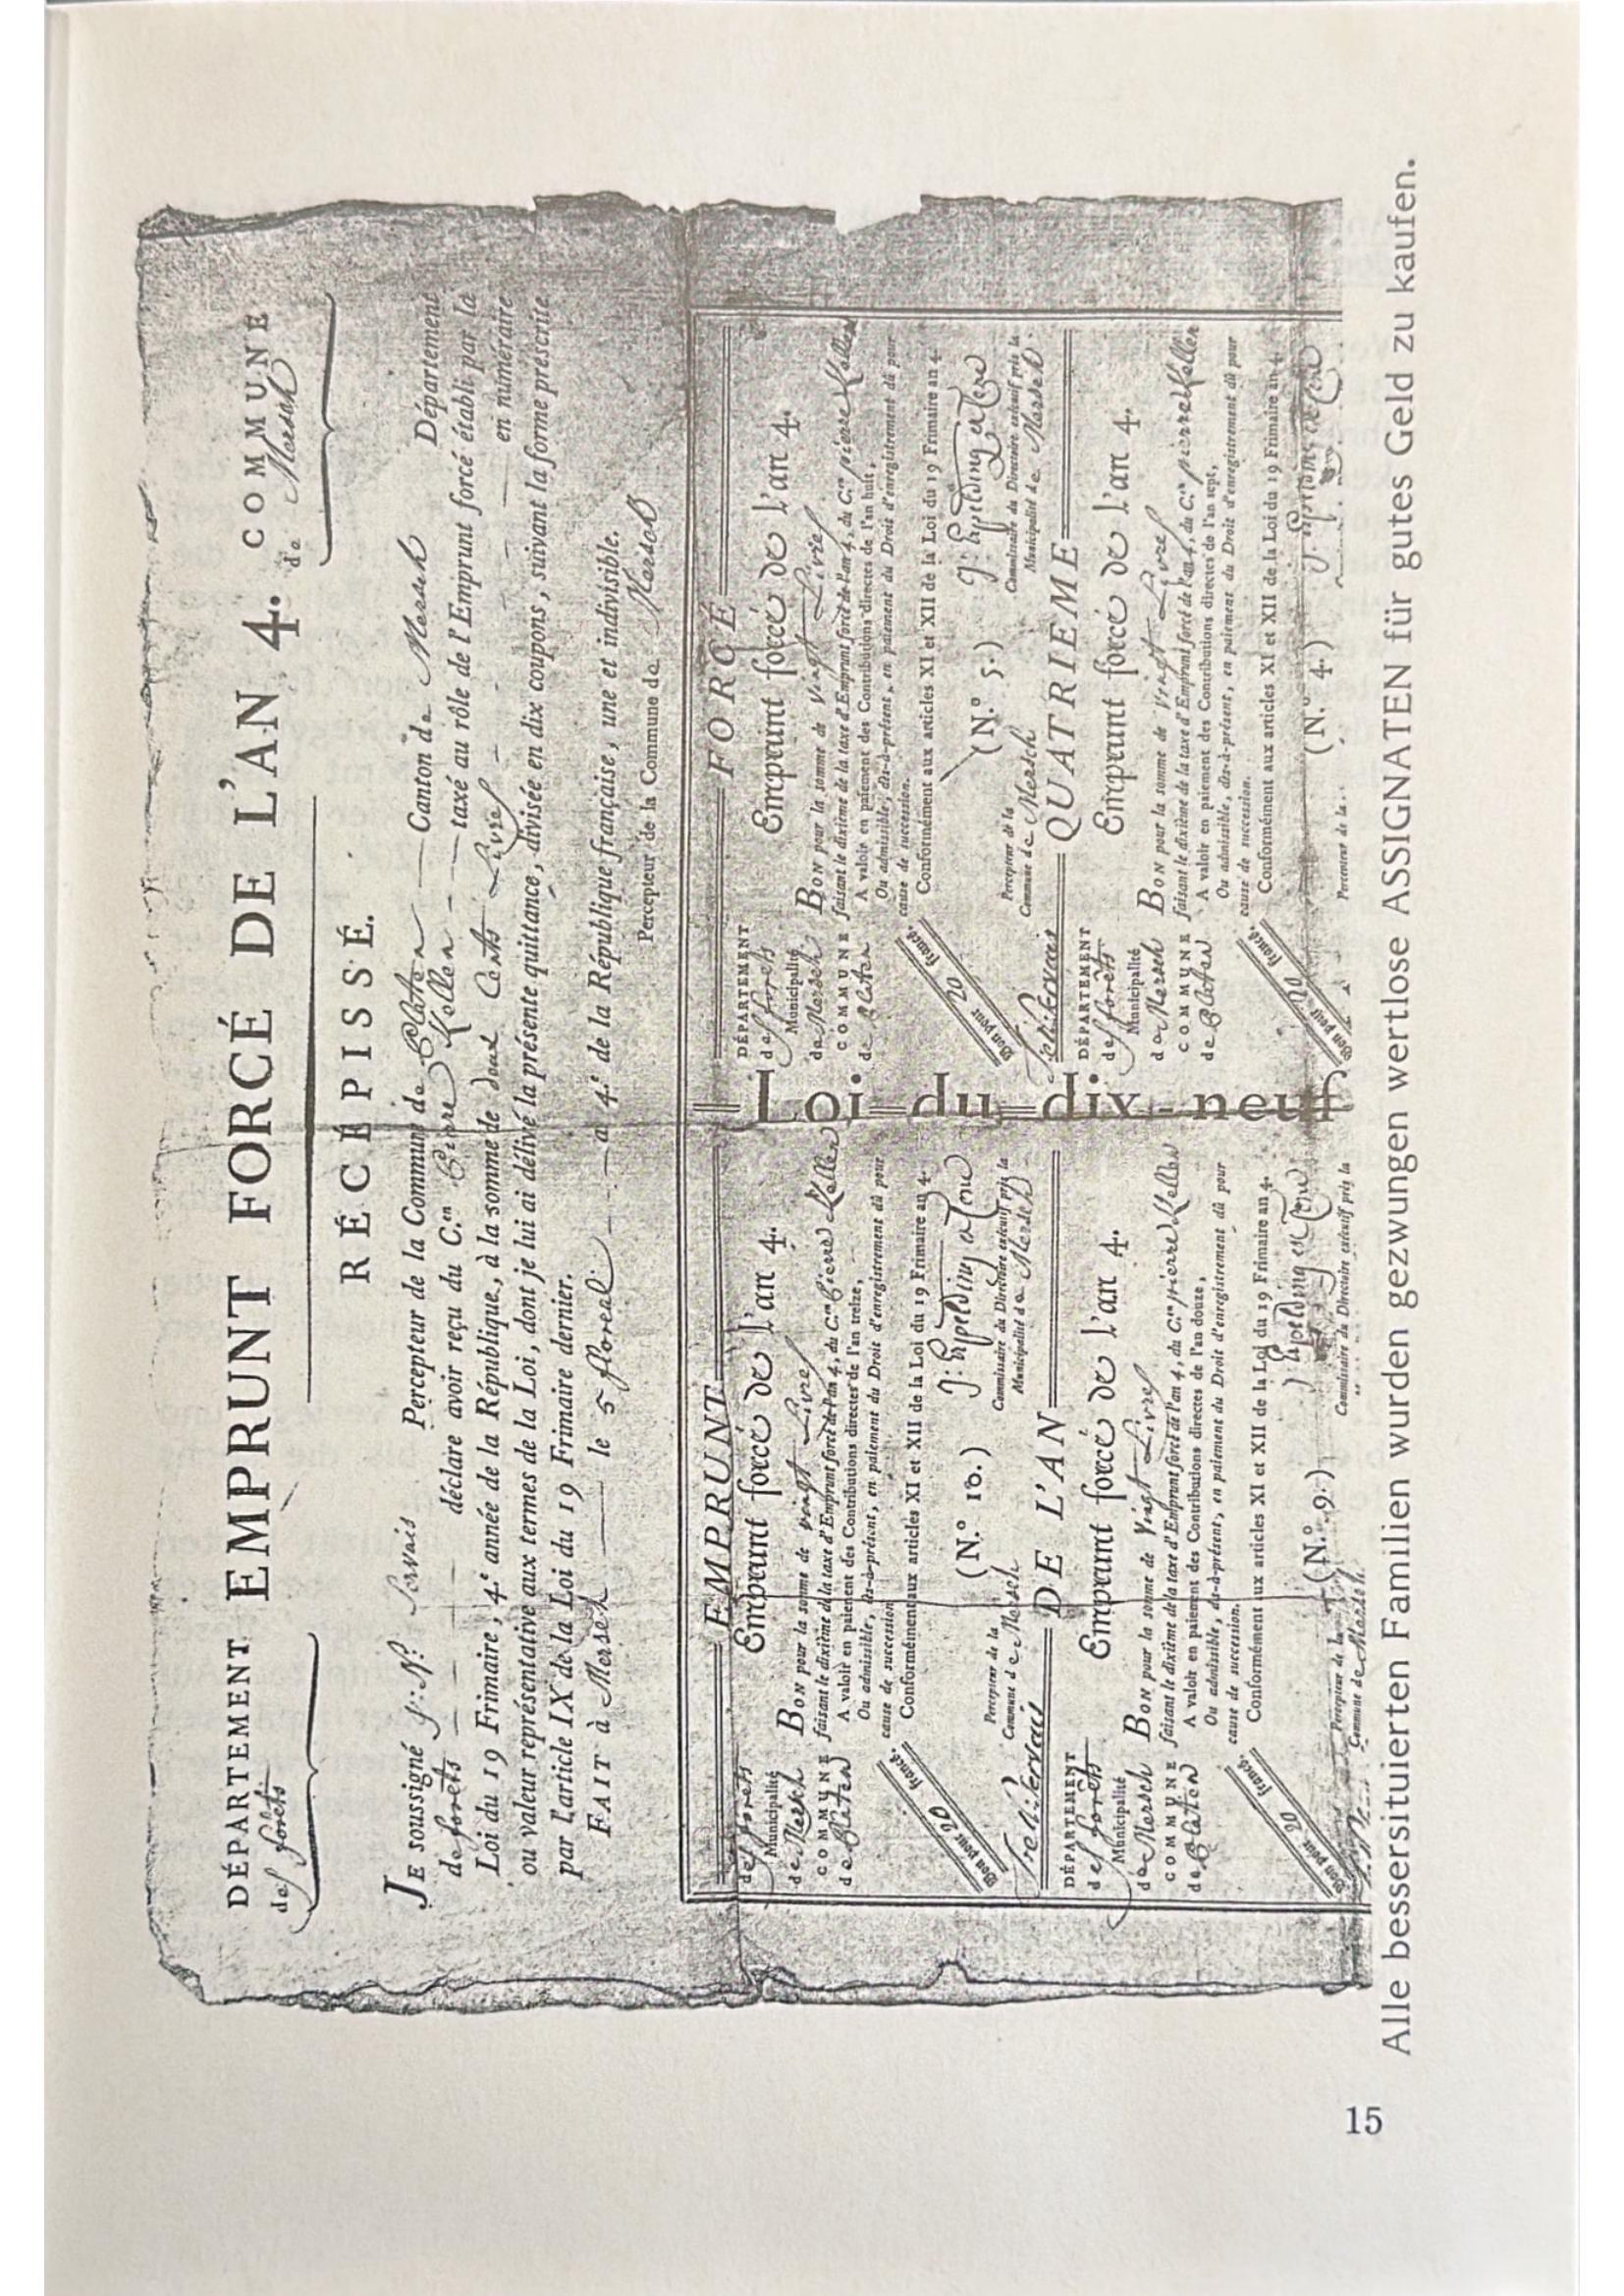 DÉPARTEMENT EMPRUNT FORCÉ DE L'AN 4. COMMUNE
des forêts de Mersch
RÉCÉPISSÉ.
JE soussigné J: N: Servais Percepteur de la Commune de Canton de Mersch Département
de forêts déclare avoir reçu du C.en Pierre Kellen taxé au rôle de l'Emprunt forcé établi par la
Loi du 19 Frimaire, 4.e année de la République, à la somme de deux Cents Livres en numéraire
ou valeur représentative aux termes de la Loi, dont je lui ai délivé la présente quittance, divisée en dix coupons, suivant la forme prescrite
par l'article IX de la Loi du 19 Frimaire dernier.
FAIT à Mersch le 5 floreal a 4.e de la République française, une et indivisible.
Percepteur de la Commune de Mersch
EMPRUNT
des forets
Municipalité
de Mersch
COMMUNE
de
Emprunt forcé de l'an 4.
BON pour la somme de vingt Livres
faisant le dixième de la taxe d'Emprunt forcé de l'an 4, du C.en Pierre Kellen
A valoir en paiement des Contributions directes de l'an treize,
Ou admissible, dès-à-présent, en paiement du Droit d'enregistrement dû pour
cause de succession
Conformément aux articles XI et XII de la Loi du 19 Frimaire an 4.
Bon pour 20 francs.
(N.º 10.)
Percepteur de la
Commune de Mersch
Commissaire du Directoire exécutif près la
Municipalité de Mersch
FORCÉ
DÉPARTEMENT
des forets
Municipalité
de Mersch
COMMUNE
de
Emprunt forcé de l'an 4.
BON pour la somme de Vingt Livres
faisant le dixième de la taxe d'Emprunt forcé de l'an 4, du C.en pierre Kellen
A valoir en paiement des Contributions directes de l'an huit,
Ou admissible, dès-à-présent, en paiement du Droit d'enregistrement dû pour
cause de succession.
Conformément aux articles XI et XII de la Loi du 19 Frimaire an 4.
Bon pour 20 francs.
(N.º 5.)
Percepteur de la
Commune de Mersch
Commissaire du Directoire exécutif près la
Municipalité de Mersch
Loi du dix-neuf
DE L'AN
DÉPARTEMENT
des forêts
Municipalité
de Mersch
COMMUNE
de
Emprunt forcé de l'an 4.
BON pour la somme de Vingt Livres
faisant le dixième de la taxe d'Emprunt forcé de l'an 4, du C.en pierre Kellen
A valoir en paiement des Contributions directes de l'an douze,
Ou admissible, dès-à-présent, en paiement du Droit d'enregistrement dû pour
cause de succession.
Conformément aux articles XI et XII de la Loi du 19 Frimaire an 4.
Bon pour 20 francs.
(N.º 9.)
Percepteur de la
Commune de Mersch.
Commissaire du Directoire exécutif près la
QUATRIEME
DÉPARTEMENT
des forêts
Municipalité
de Mersch
COMMUNE
de
Emprunt forcé de l'an 4.
BON pour la somme de Vingt Livres
faisant le dixième de la taxe d'Emprunt forcé de l'an 4, du C.en pierre Kellen
A valoir en paiement des Contributions directes de l'an sept,
Ou admissible, dès-à-présent, en paiement du Droit d'enregistrement dû pour
cause de succession.
Conformément aux articles XI et XII de la Loi du 19 Frimaire an 4.
Bon pour 20 francs.
(N.º 4.)
Percepteur de la
Alle bessersituierten Familien wurden gezwungen wertlose ASSIGNATEN für gutes Geld zu kaufen.
15